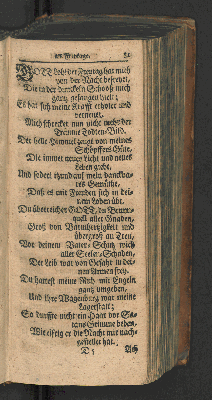 am Freytage. 81
GOTT Lob! der Freytag hat mich
von der Nacht befreyet,
Die in der dunckeln Schooß mich
gantz gefangen hielt;
Es hat sich meine Krafft erholet und
verneuet,
Mich schrecket nun nicht mehr der
Träume Todten-Bild.
Der helle Himmel zeugt von meines
Schöpffers Güte,
Die immer neues Licht und neues
Leben giebt,
Und fodert itzund auch mein danckba-
res Gemüthe,
Daß es mit Freuden sich in dei-
nem Loben übt.
Du überreicher GOTT, du Brunn-
quell aller Gnaden,
Groß von Barmhertzigkeit und
übergroß an Treu,
Vor deinem Vater-Schutz wich
aller Seelen-Schaden,
Der Leib war von Gefahr in dei-
nen Armen frey.
Du hattest meine Ruh mit Engeln
gantz umgeben,
Und ihre Wagenburg war meine
Lagerstatt;
So durffte nicht ein Haar vor Sa-
tans Grimme beben,
Wie eifrig er die Nacht mir nach-
gestellet hat.
D 5 Ach